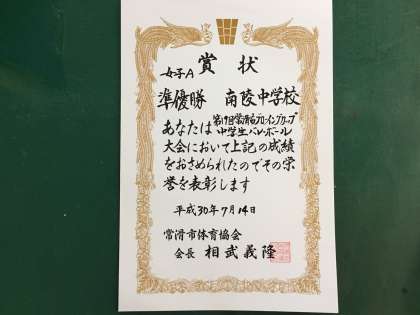 賞状
女子A
準優勝 南陵中学校
あなたは
中学生バレーボール
大会において上記の成績
をおさめられたのでその栄
誉を表彰します
平成30年7月14日
常滑市体育協会
会長 相武義隆